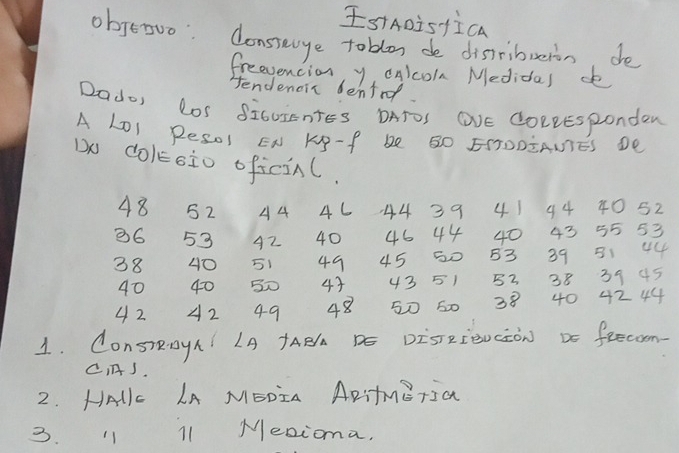 EstADisticA
objetivo: Construye tablas de distribución de
frecuencias y cAlcolA Medidas de
Tendencia Central.
Dados los SiGuiENTES DATOS QUE CORRESponden
A LOS Pesos EN Kg-f DE 50 ESTUDIANTES DE
UN COlEGio oficiAl.
48 52 44 46 44 39 41 44 40 52
36 53 42 40 46 44 40 43 55 53
38 40 51 49 45 50 53 39 51 44
40 40 50 47 43 51 52 38 39 45
42 42 49 48 50 50 38 40 42 44
1. ConstRuyA LA tAblA DE DISTRIBUCIÓN DE frecuen-
CiAS.
2. HAlle LA MEDIA ARitMéTicA
3. " " MeDiana.